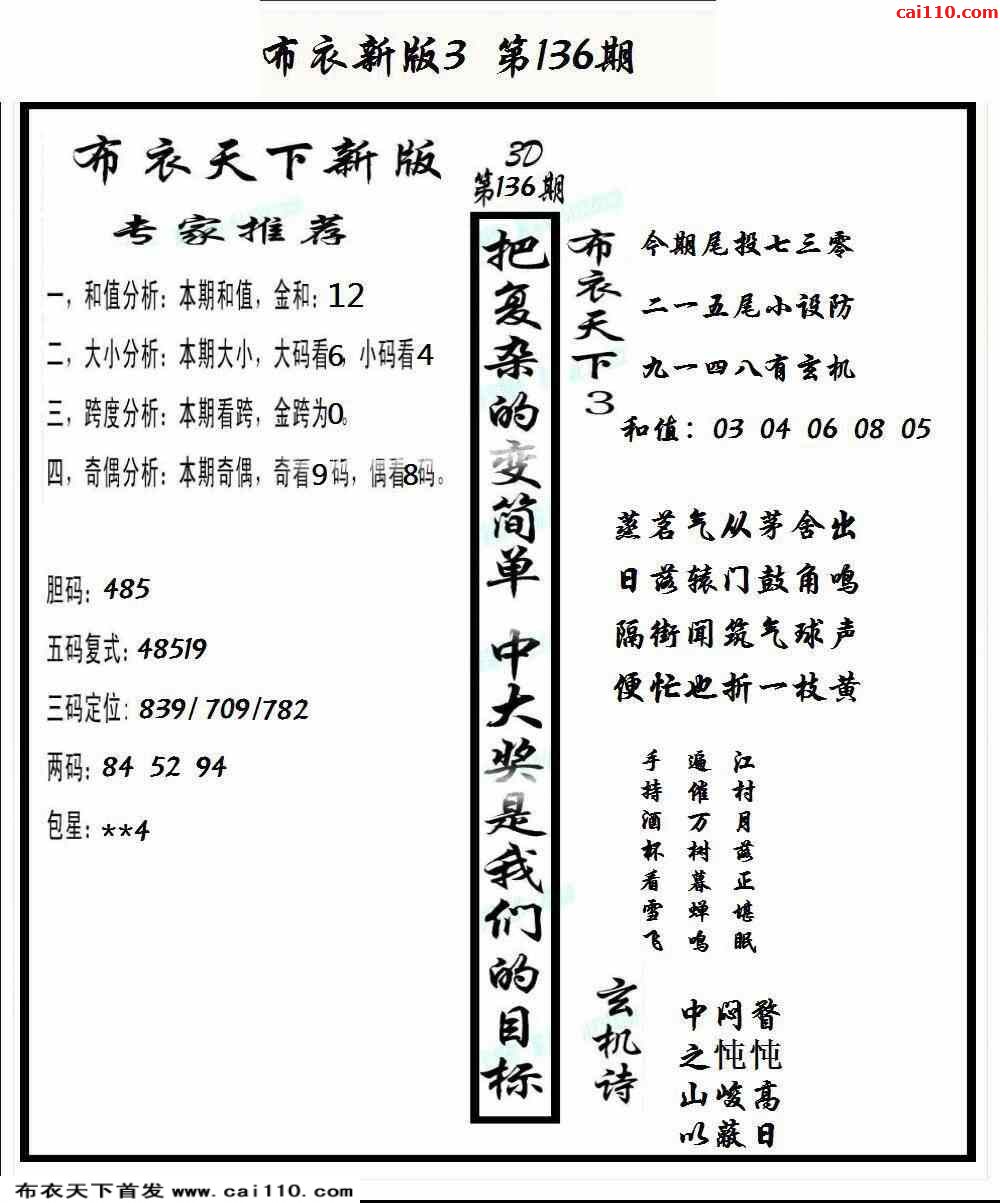 cai110.com
布衣新版3 第136期
布衣天下新版
专家推荐
一，和值分析：本期和值，金和：12
二，大小分析：本期大小，大码看6，小码看4
三，跨度分析：本期看跨，金跨为0。
四，奇偶分析：本期奇偶，奇看9码，偶看8码。
胆码：485
五码复式：48519
三码定位：839/709/782
两码：84 52 94
包星：**4
3D
第136期
把复杂的变简单 中大奖是我们的目标
布衣天下3
今期尾投七三零
二一五尾小设防
九一四八有玄机
和值：03 04 06 08 05
蒸茗气从茅舍出
日落辕门鼓角鸣
隔街闻筑气球声
便忙也折一枝黄
江村月落正堪眠
遍催万树暮蝉鸣
手持酒杯看雪飞
玄机诗
中闷瞀
之忳忳
山峻高
以蔽日
布衣天下首发 www.cai110.com